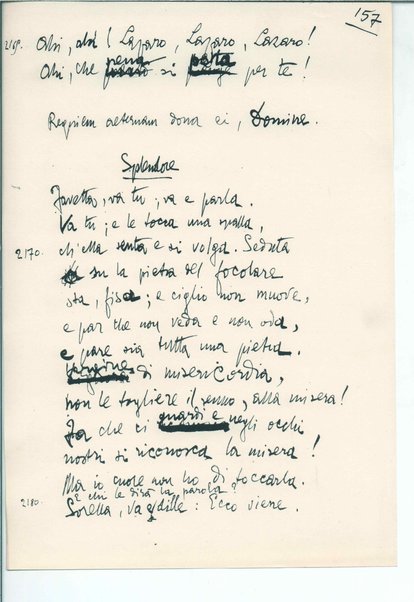 157
2169. Ohi, ohi! Lazaro, Lazaro, Lazaro!
Ohi, che pena si patta per te!
Requiem aeternam dona ei, Domine.
Splendore
Favetta, va tu, va e parla.
Va tu; e le tocca una spalla,
2170. ch'ella senta e si volga. Seduta
su la pietra del focolare
sta, fisa; e ciglio non muove,
e par che non veda e non oda,
e pare sia tutta una pietra.
Vergine di misericordia,
non le togliere il senno, alla misera!
Fa che ci guardi e negli occhi
nostri si riconosca la misera!
Ma io cuore non ho di toccarla.
2180. e chi le dirà la parola?
Sorella, va e dille: Ecco viene.